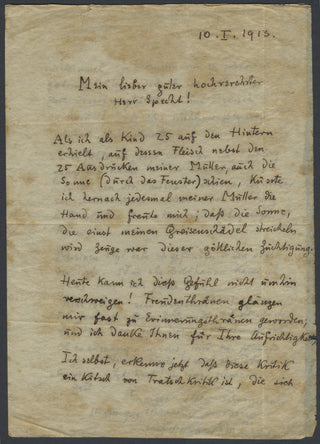 10. I. 1913.
Mein lieber guter hochverehrter
Herr Specht!
Als ich als Kind 25 auf den Hintern
erhielt, auf dessen Fleisch nebst den
25 Ausdrücken meiner Mutter, auch die
Sonne (durch das Fenster) schien, küsste
ich hernach jedesmal meiner Mutter die
Hand und freute mich; daß die Sonne,
die einst meinen Greisenschädel streicheln
wird Zeuge war dieser göttlichen Züchtigung.
Heute kann ich dieß Gefühl nicht umhin
verschweigen! Freudenthränen glänzen
mir fast zu Erinnerungsthränen geworden;
und ich danke Ihnen für Ihre Aufrichtigkeit
Ich selbst, erkenne jetzt daß diese Kritik
ein Kitsch von Tratsch Kritik ist, die sich